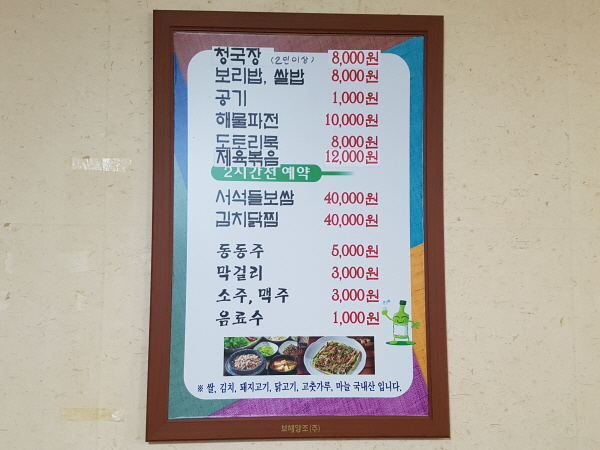 청국장 (2인이상) 8,000원
보리밥, 쌀밥 8,000원
공기 1,000원
해물파전 10,000원
도토리묵 8,000원
제육볶음 12,000원
2시간전 예약
서석들보쌈 40,000원
김치닭찜 40,000원
동동주 5,000원
막걸리 3,000원
소주, 맥주 3,000원
음료수 1,000원
※ 쌀, 김치, 돼지고기, 닭고기, 고춧가루, 마늘 국내산 입니다.
보해양조(주)